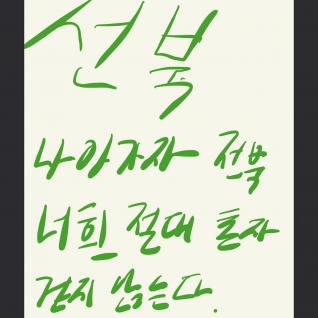 전북
나아가자 전북
너희 절대 혼자
걷지 않는다.